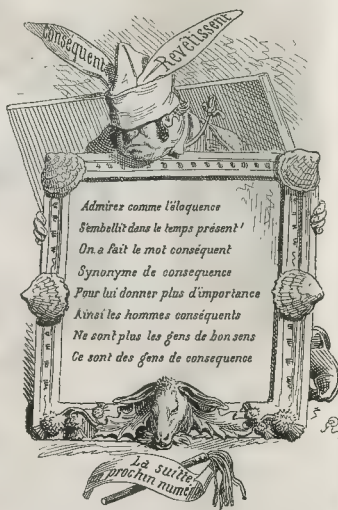 Conséquent
Revêtissent
Admirez comme l'éloquence
S'embellit dans le temps présent!
On a fait le mot conséquent
Synonyme de consequence
Pour lui donner plus d'importance
Ainsi les hommes conséquents
Ne sont plus les gens de bon sens
Ce sont des gens de consequence
La suitte
prochin numé